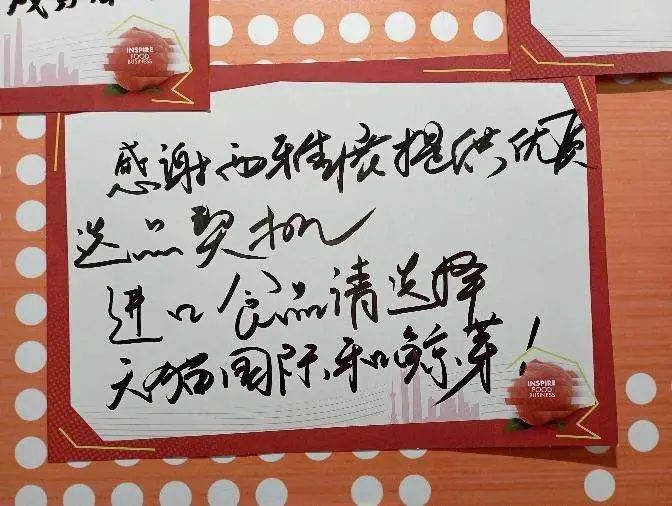 INSPIRE
FOOD
BUSINESS
感谢西雅展提供优质
选品契机
进口食品请选择
天猫国际和鲸芽！
INSPIRE
FOOD
BUSINESS